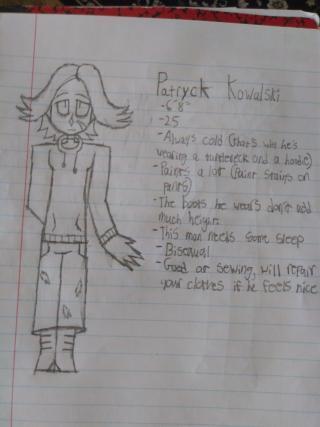 Patryck Kowalski
-6'8"
-25
-Always cold (thats why he's
wearing a turtleneck and a hoodie)
-Paints a lot (Paint stains on
pants)
-The boots he wears don't add
much height
-This man needs some sleep
-Bisexual
-Good at sewing, will repair
your clothes if he feels nice